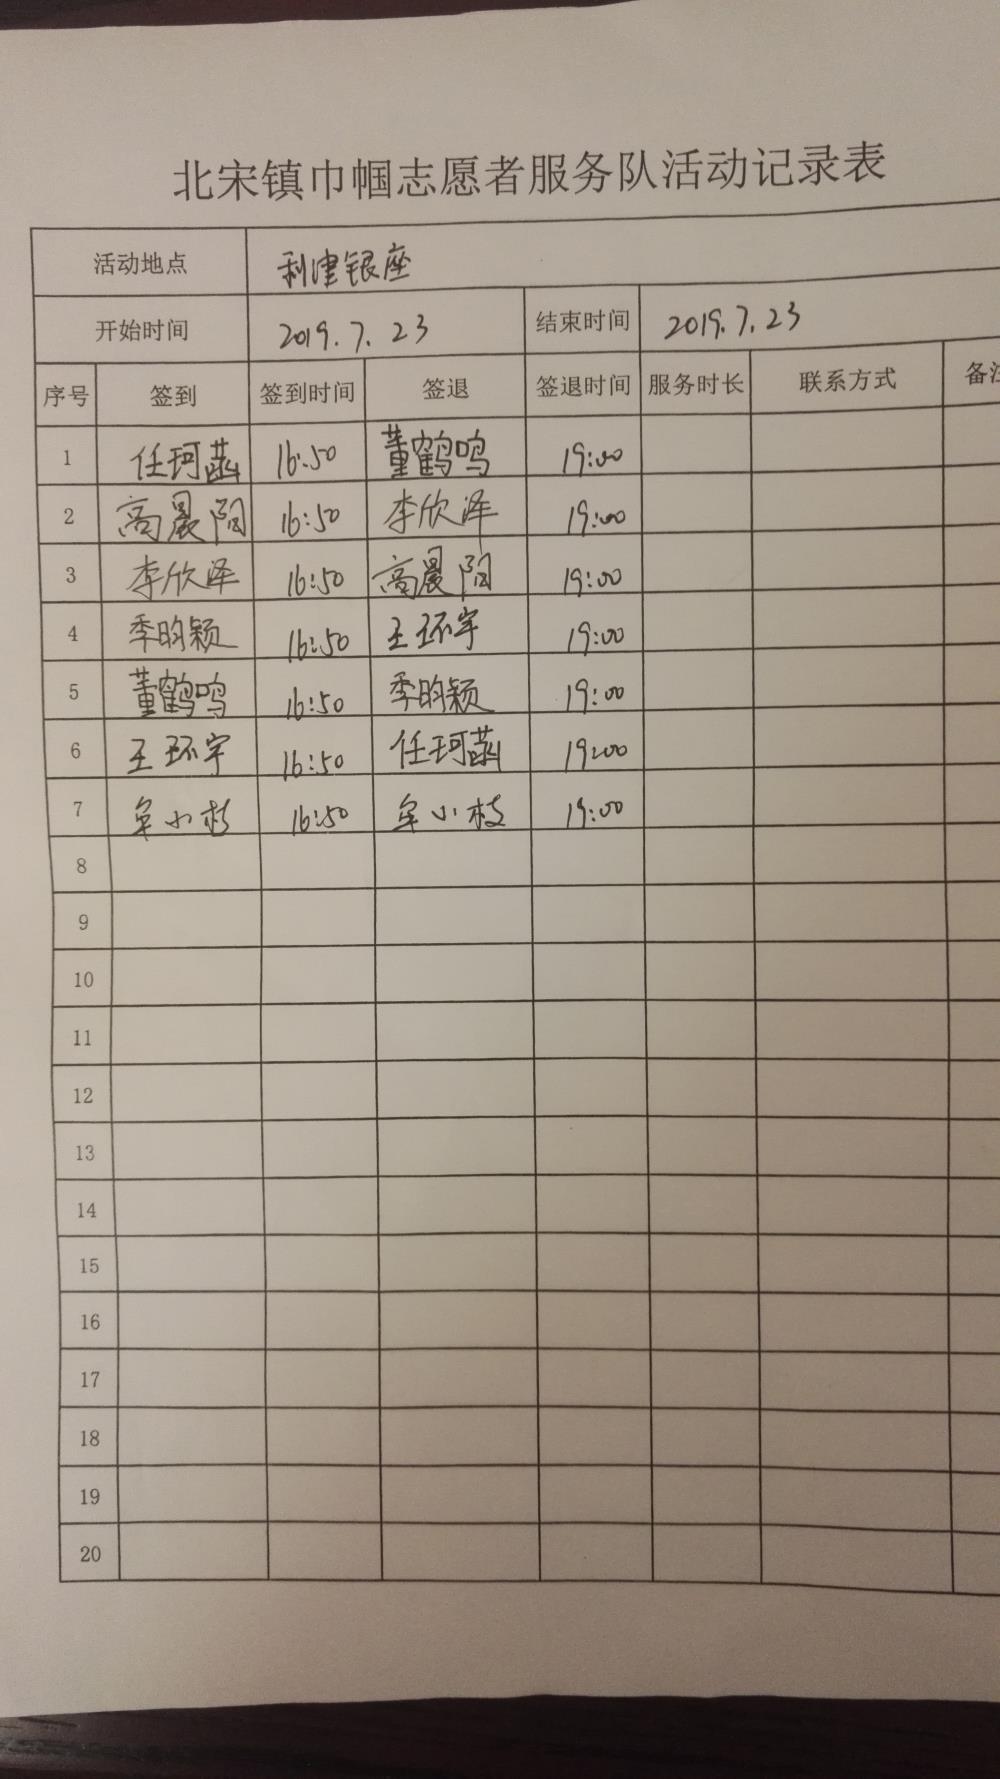 北宋镇巾帼志愿者服务队活动记录表
活动地点 利津银座
开始时间 2019.7.23 结束时间 2019.7.23
序号 签到 签到时间 签退 签退时间 服务时长 联系方式 备注
1 任珂菡 16:50 董鹤鸣 19:00
2 高晨阳 16:50 李欣泽 19:00
3 李欣泽 16:50 高晨阳 19:00
4 季昀颖 16:50 王环宇 19:00
5 董鹤鸣 16:50 季昀颖 19:00
6 王环宇 16:50 任珂菡 19:00
7 牟小枝 16:50 牟小枝 19:00
8
9
10
11
12
13
14
15
16
17
18
19
20